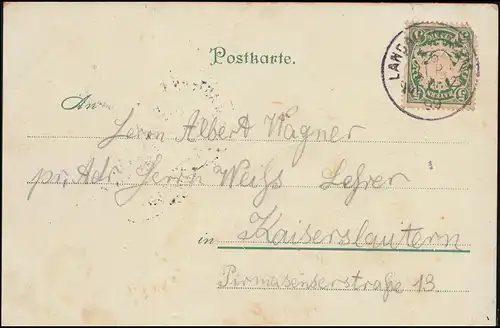 Postkarte.
An
Herrn Albert Wagner
pr. Adr. Herrn Weiss Lehrer
in Kaiserslautern
Pirmasenserstraße 13